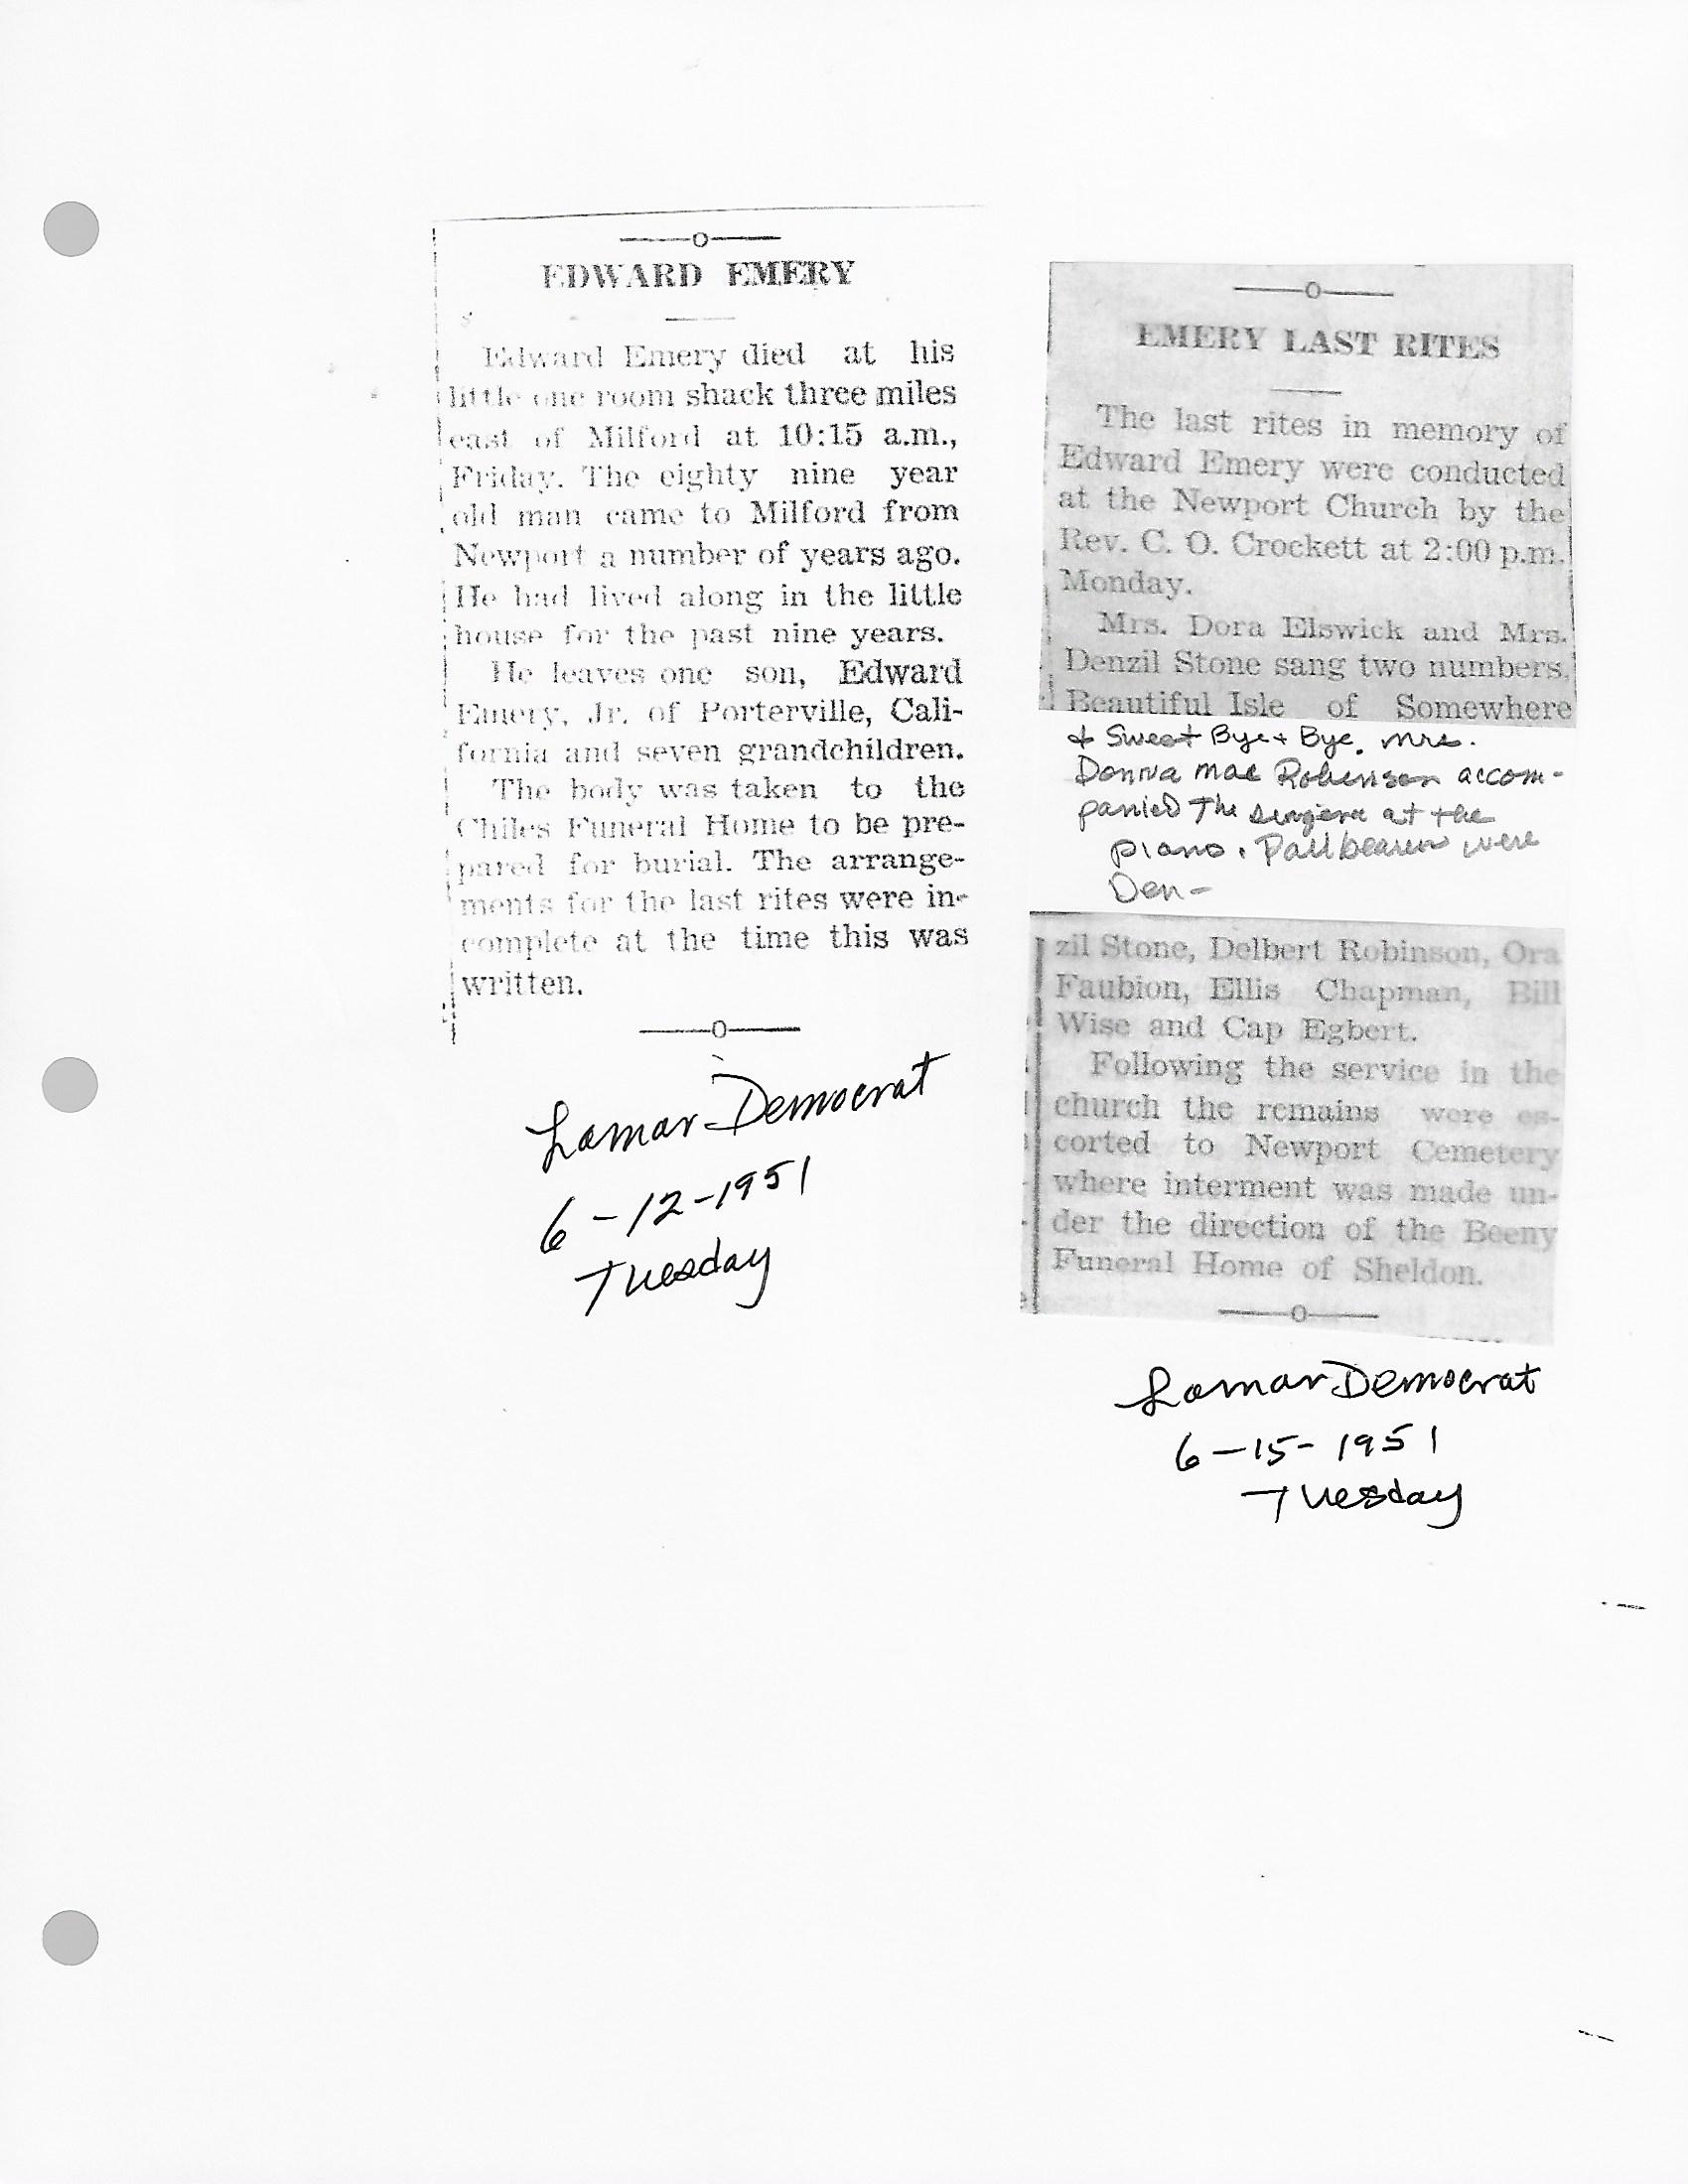 EDWARD EMERY
Edward Emery died at his
little one room shack three miles
east of Milford at 10:15 a.m.,
Friday. The eighty nine year
old man came to Milford from
Newport a number of years ago.
He had lived along in the little
house for the past nine years.
He leaves one son, Edward
Emery, Jr. of Porterville, Cali-
fornia and seven grandchildren.
The body was taken to the
Chiles Funeral Home to be pre-
pared for burial. The arrange-
ments for the last rites were in-
complete at the time this was
written.
Lamar Democrat
6-12-1951
Tuesday
EMERY LAST RITES
The last rites in memory of
Edward Emery were conducted
at the Newport Church by the
Rev. C. O. Crockett at 2:00 p.m.
Monday.
Mrs. Dora Elswick and Mrs.
Denzil Stone sang two numbers.
Beautiful Isle of Somewhere
& Sweet Bye & Bye. Mrs.
Donna Mae Robinson accom-
panied The singers at the
piano. Pallbearers were
Den-
zil Stone, Delbert Robinson, Ora
Faubion, Ellis Chapman, Bill
Wise and Cap Egbert.
Following the service in the
church the remains were es-
corted to Newport Cemetery
where interment was made un-
der the direction of the Beeny
Funeral Home of Sheldon.
Lamar Democrat
6-15-1951
Tuesday